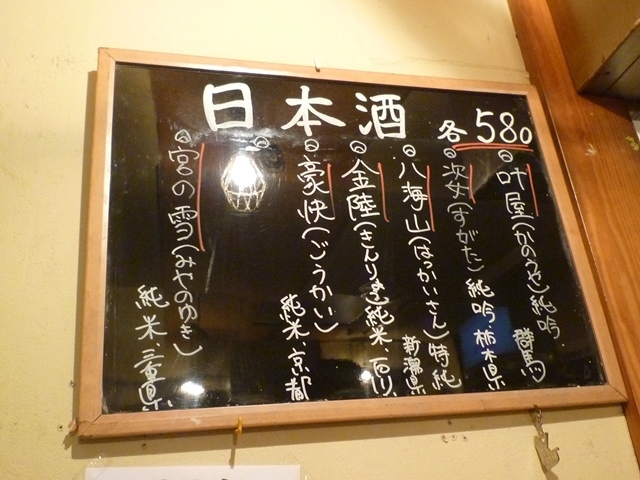 日本酒
各580
叶屋(かのうや)純吟
群馬
姿(すがた)純吟・栃木県
八海山(はっかいさん)特純
新潟県
金陸(きんりょう)純米
豪快(ごうかい)
純米・京都
宮の雪(みやのゆき)
純米・三重県